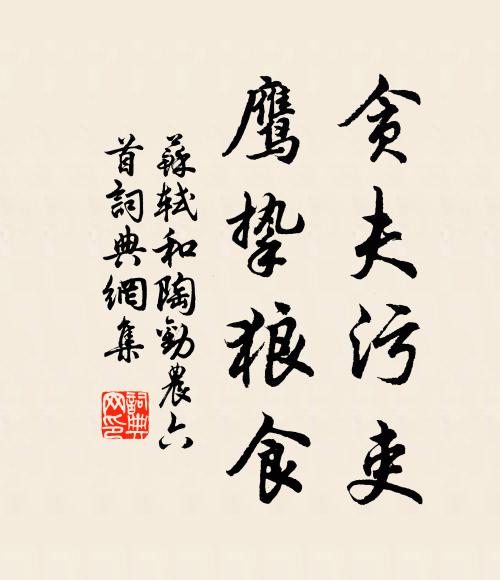 贪夫污吏
鹰挚狼食
蘇轼和陶勸農六
首詞典網集
詞典
网印